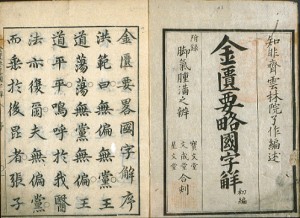 知非齋雲林院了作編述
金匱要略國字解 初編
附錄
脚氣腫滿之辨
寶文堂
文成堂
星文堂
金匱要畧國字解序
洪範曰無偏無黨王
道蕩蕩無黨無偏王
道平平嗚呼我醫
法亦復爾夫無偏黨
而垂於後昆者張子